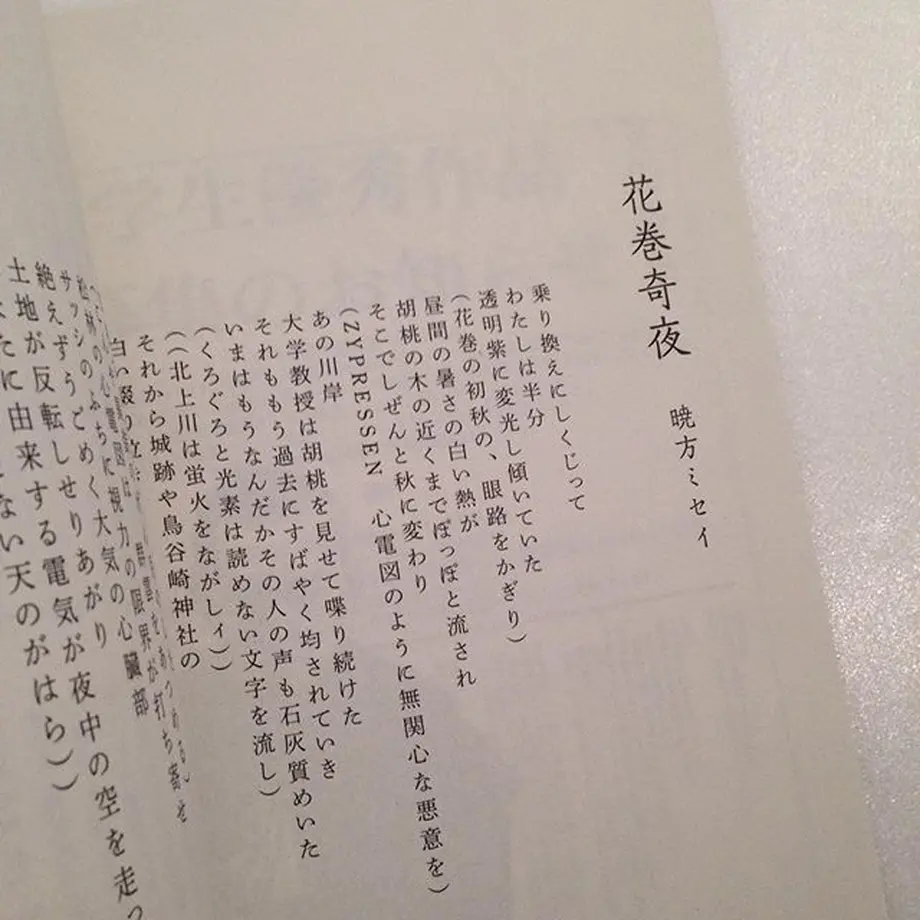 花巻奇夜
暁方ミセイ
乗り換えにしくじって
わたしは半分
透明紫に変光し傾いていた
(花巻の初秋の、眼路をかぎり)
昼間の暑さの白い熱が
胡桃の木の近くまでぽっぽと流され
そこでしぜんと秋に変わり
(ZYPRESSEN 心電図のように無関心な悪意を)
あの川岸
大学教授は胡桃を見せて喋り続けた
それももう過去にすばやく均されていき
いまはもうなんだかその人の声も石灰質めいた
(くろぐろと光素は読めない文字を流し)
((北上川は蛍火をながしィ))
それから城跡や鳥谷崎神社の
白い
群雲をあつめる
心電図は
限界が打ち寄せ
松材のふちに視力の心臓部
サッシのふちにうごめく大気の
絶えずうどめくせりあがり
土地が反転し
電気が夜中の空を走っ
たに由来する
ない天のがはら))